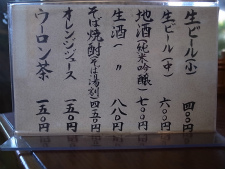 生ビール(小) 四〇〇円
生ビール(中) 六〇〇円
地酒(純米吟醸) 七〇〇円
生酒( 〃 ) 八八〇円
そば焼酎(そば湯割) 四五〇円
オレンジジュース 一五〇円
ウーロン茶 一五〇円